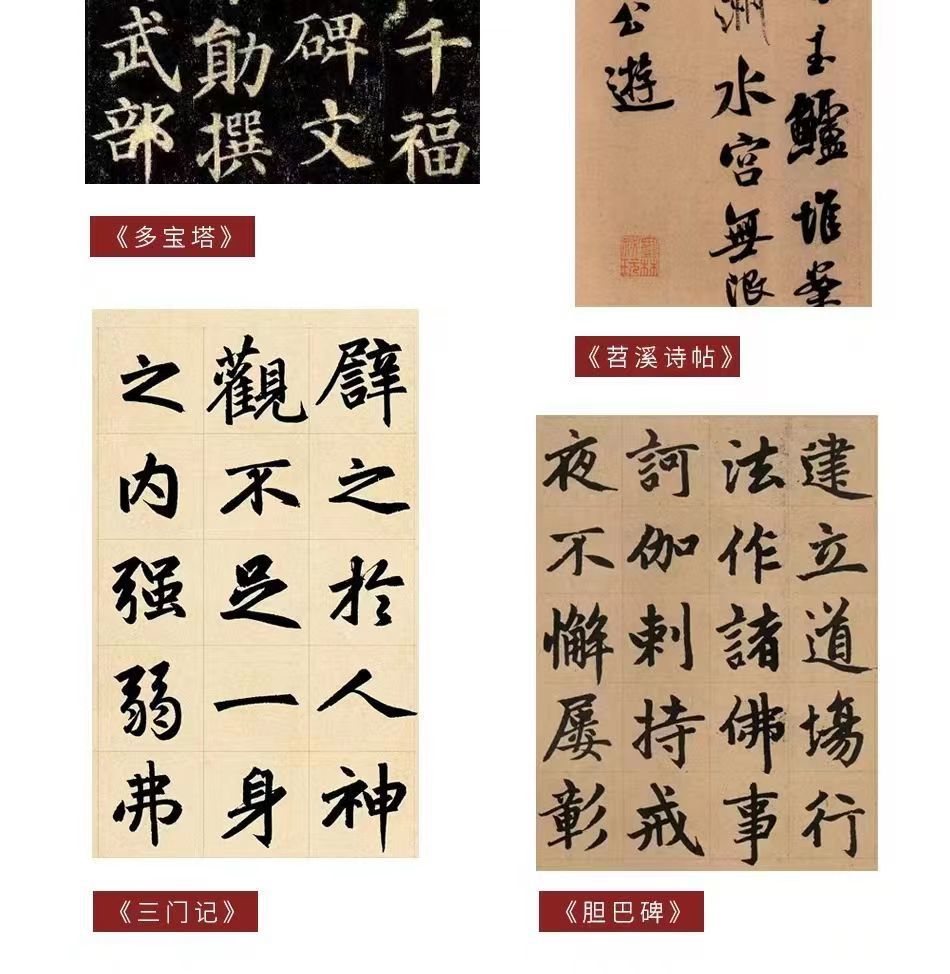 千福
碑文
勛撰
武部
《多宝塔》
玉鱸堆案
洲水宮無限
公遊
《苕溪诗帖》
譬之於人神
觀不足一身
之内强弱弗
《三门记》
建立道場行
法作諸佛事
訶伽剌持戒
夜不懈屢彰
《胆巴碑》